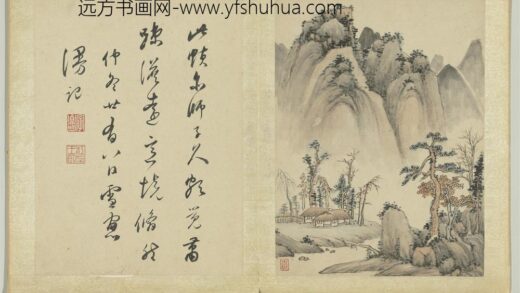 远方书画网: www.yfshuhua.com
此幀亦師子久頗覺蕭
疎澹遠意境翛然
仲冬廿有八日雪窓
漫記